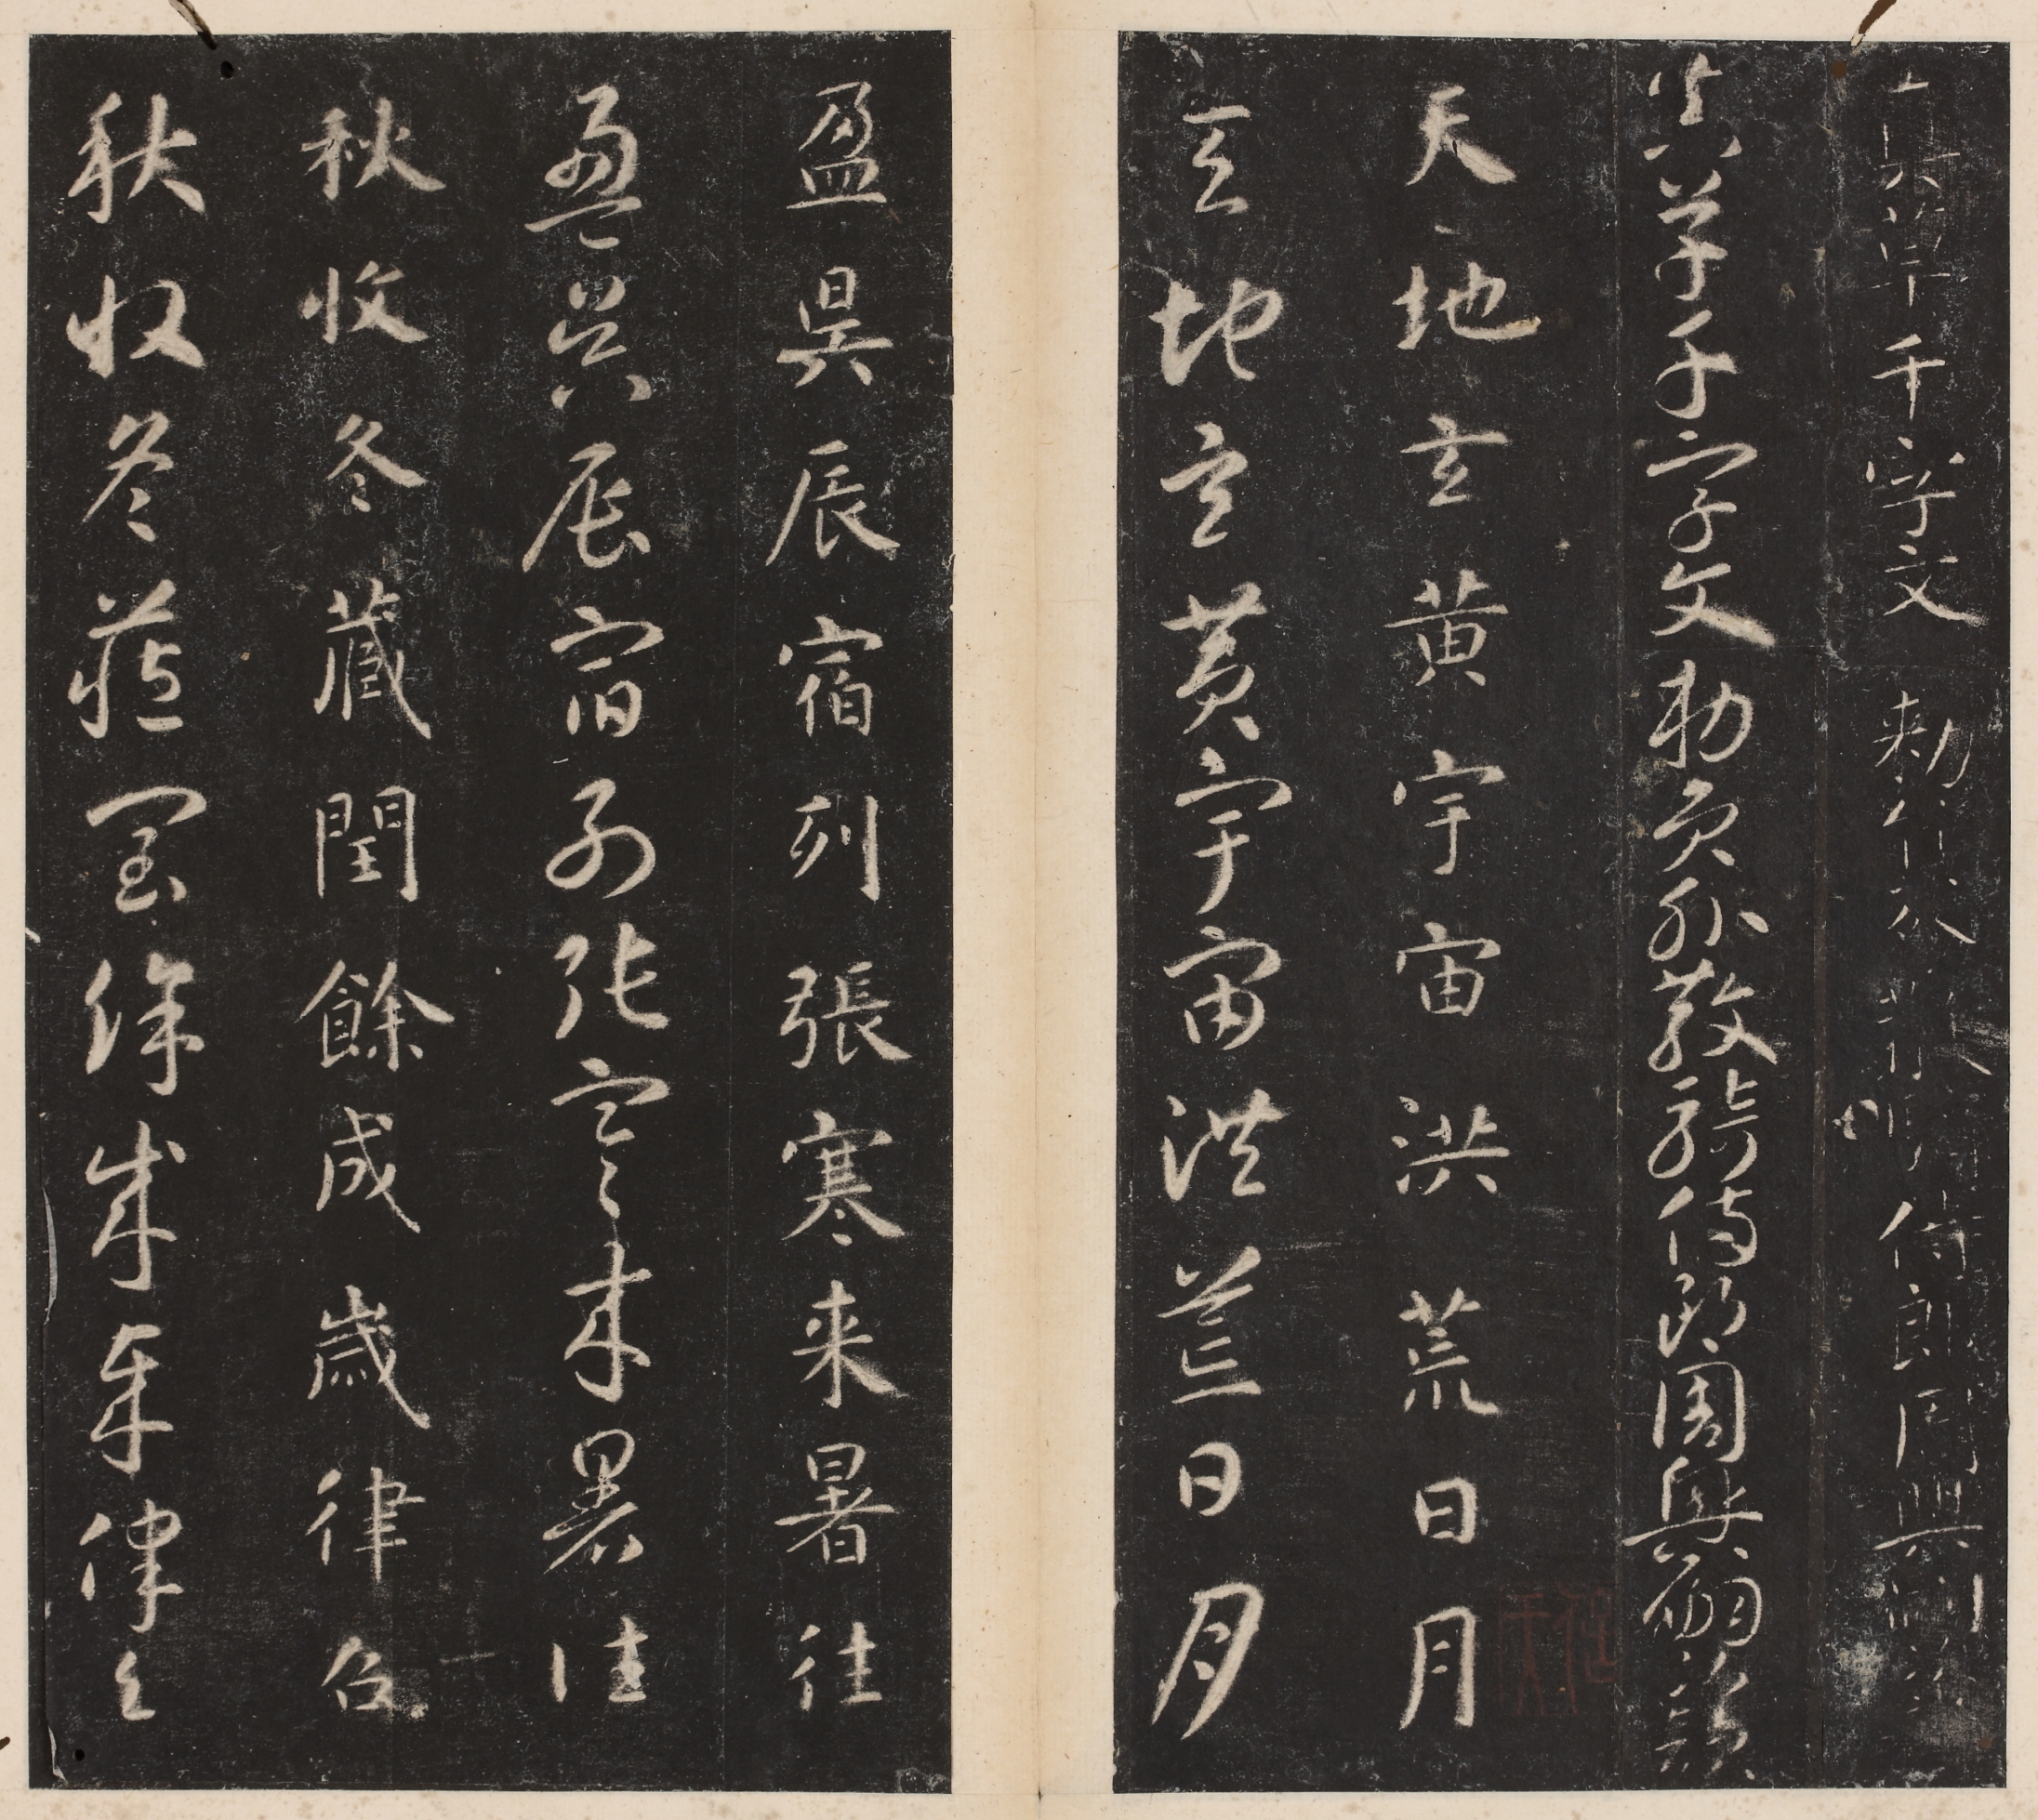 真草千字文勅員外散騎侍郎周興嗣次
真草千字文勅員外散騎侍郎周興嗣次韻
天地玄黄宇宙洪荒日月
天地玄黄宇宙洪荒日月
盈昃辰宿列張寒来暑往
盈昃辰宿列張寒来暑往
秋收冬藏閏餘成歲律召
秋收冬藏閏餘成歲律召